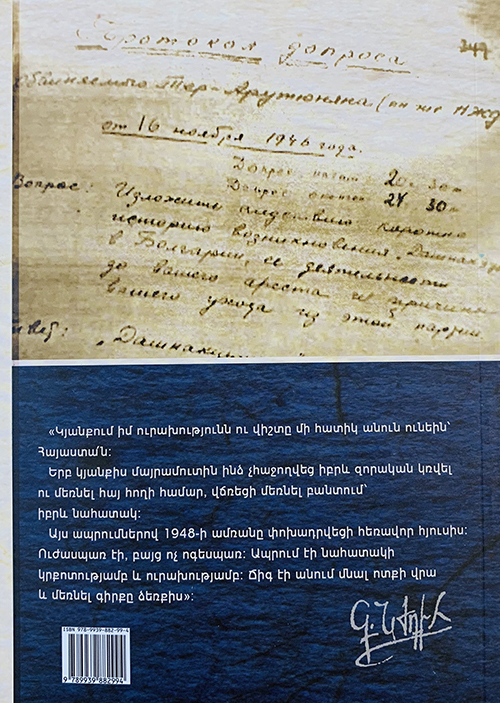 Протокол допроса
347
обвиняемого Тер-Арутюняна (он же Нжд
от 16 ноября 1946 года.
Допрос начат 20 30
Допрос окончен 24 30
Вопрос: Изложите следствию коротко
историю возникновения „Дашнакцу
в Болгарии, ее деятельность
до вашего ареста и причины
вашего ухода из этой партии.
Ответ: „Дашнакцутюн
«Կյանքում իմ ուրախությունն ու վիշտը մի հատիկ անուն ունեին՝
Հայաստա՜ն։
Երբ կյանքիս մայրամուտին ինձ չհաջողվեց իբրև զորական կռվել
ու մեռնել հայ հողի համար, վճռեցի մեռնել բանտում՝
իբրև նահատակ։
Այս ապրումներով 1948-ի ամռանը փոխադրվեցի հեռավոր հյուսիս։
Ուժասպառ էի, բայց ոչ ոգեսպառ։ Ապրում էի նահատակի
կրքոտությամբ և ուրախությամբ։ Ճիգ էի անում մնալ ոտքի վրա
և մեռնել գիրքը ձեռքիս»։
Գ. Նժդեհ
ISBN 978-9939-882-99-4
9 789939 882994